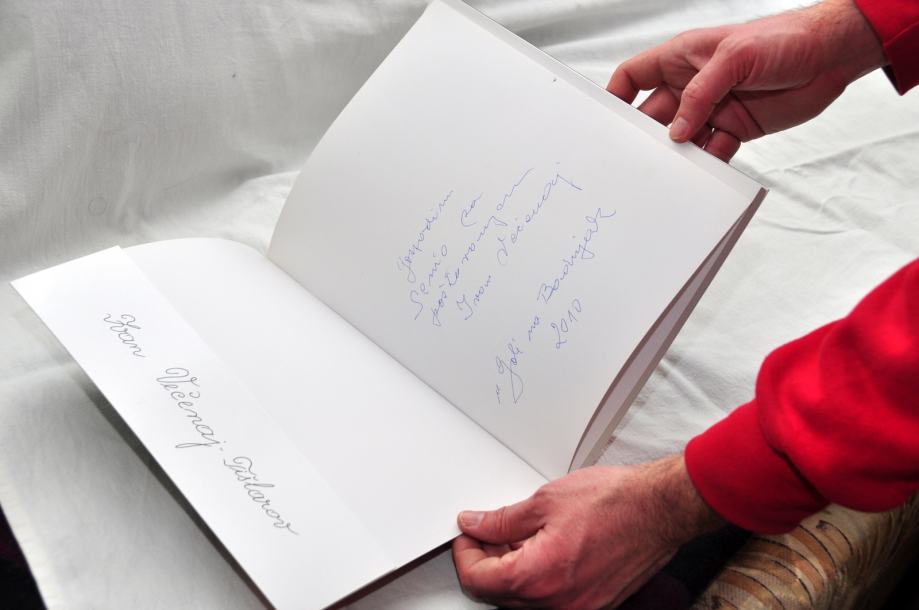 Ivan Večenaj-Tišlarov
Gospodinu
Semio za
poštovanjem
Ivan Večenaj
u Goli na Badnjak
2010